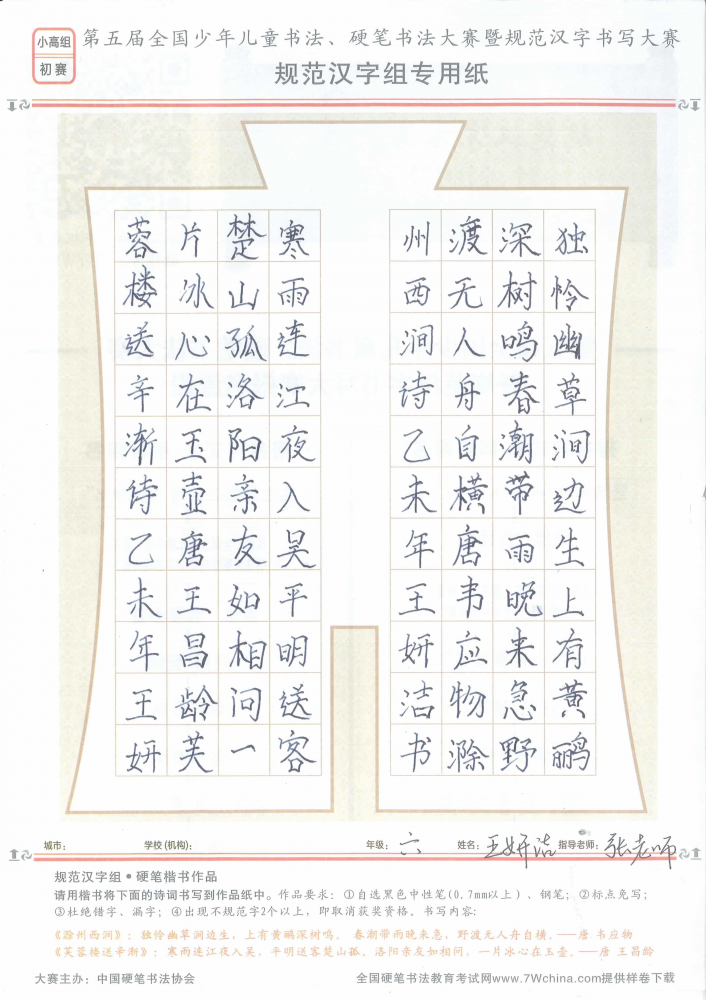 小高组
初赛
第五届全国少年儿童书法、硬笔书法大赛暨规范汉字书写大赛
规范汉字组专用纸
独怜幽草涧边生上有黄鹂
深树鸣春潮带雨晚来急野
渡无人舟自横唐韦应物滁
州西涧诗乙未年王妍洁书
寒雨连江夜入吴平明送客
楚山孤洛阳亲友如相问一
片冰心在玉壶唐王昌龄芙
蓉楼送辛渐诗乙未年王妍
城市： 学校(机构)： 年级：六 姓名：王妍洁 指导老师：张老师
规范汉字组•硬笔楷书作品
请用楷书将下面的诗词书写到作品纸中。作品要求：①自选黑色中性笔(0.7mm以上)、钢笔；②标点免写；
③杜绝错字、漏字；④出现不规范字2个以上，即取消获奖资格。书写内容：
《滁州西涧》：独怜幽草涧边生，上有黄鹂深树鸣。 春潮带雨晚来急，野渡无人舟自横。——唐 韦应物
《芙蓉楼送辛渐》：寒雨连江夜入吴，平明送客楚山孤。洛阳亲友如相问，一片冰心在玉壶。——唐 王昌龄
大赛主办：中国硬笔书法协会 全国硬笔书法教育考试网www.7Wchina.com提供样卷下载